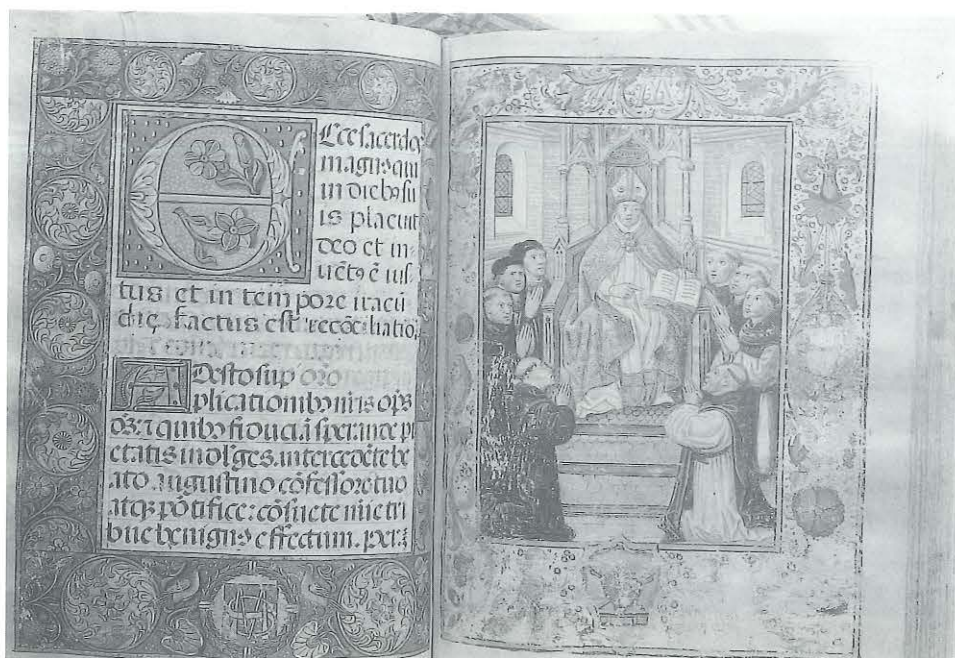 Ecce sacerdos
magnꝰ qui
in diebꝰ su
is placuit
deo et in-
uēt⁹ ē ius
tus et in tempore iracū
die factus est recōciliatio
Adesto sup oro
plicationibꝰ nr̄is op̄s
quibꝰ fiduciā sperande pi
etatis indulges. intercedēte be
ato augustino cōfessore tuo
atqꝫ pōtifice: cōsuete mie tri
bue benignꝰ effectum. per